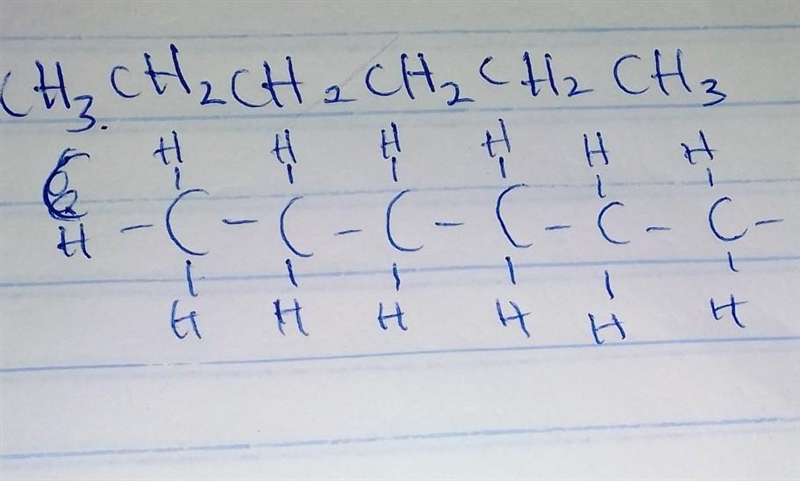 CH₃. CH₂CH₂CH₂CH₂CH₃
H H H H H H
H - C - C - C - C - C - C -
H H H H H H